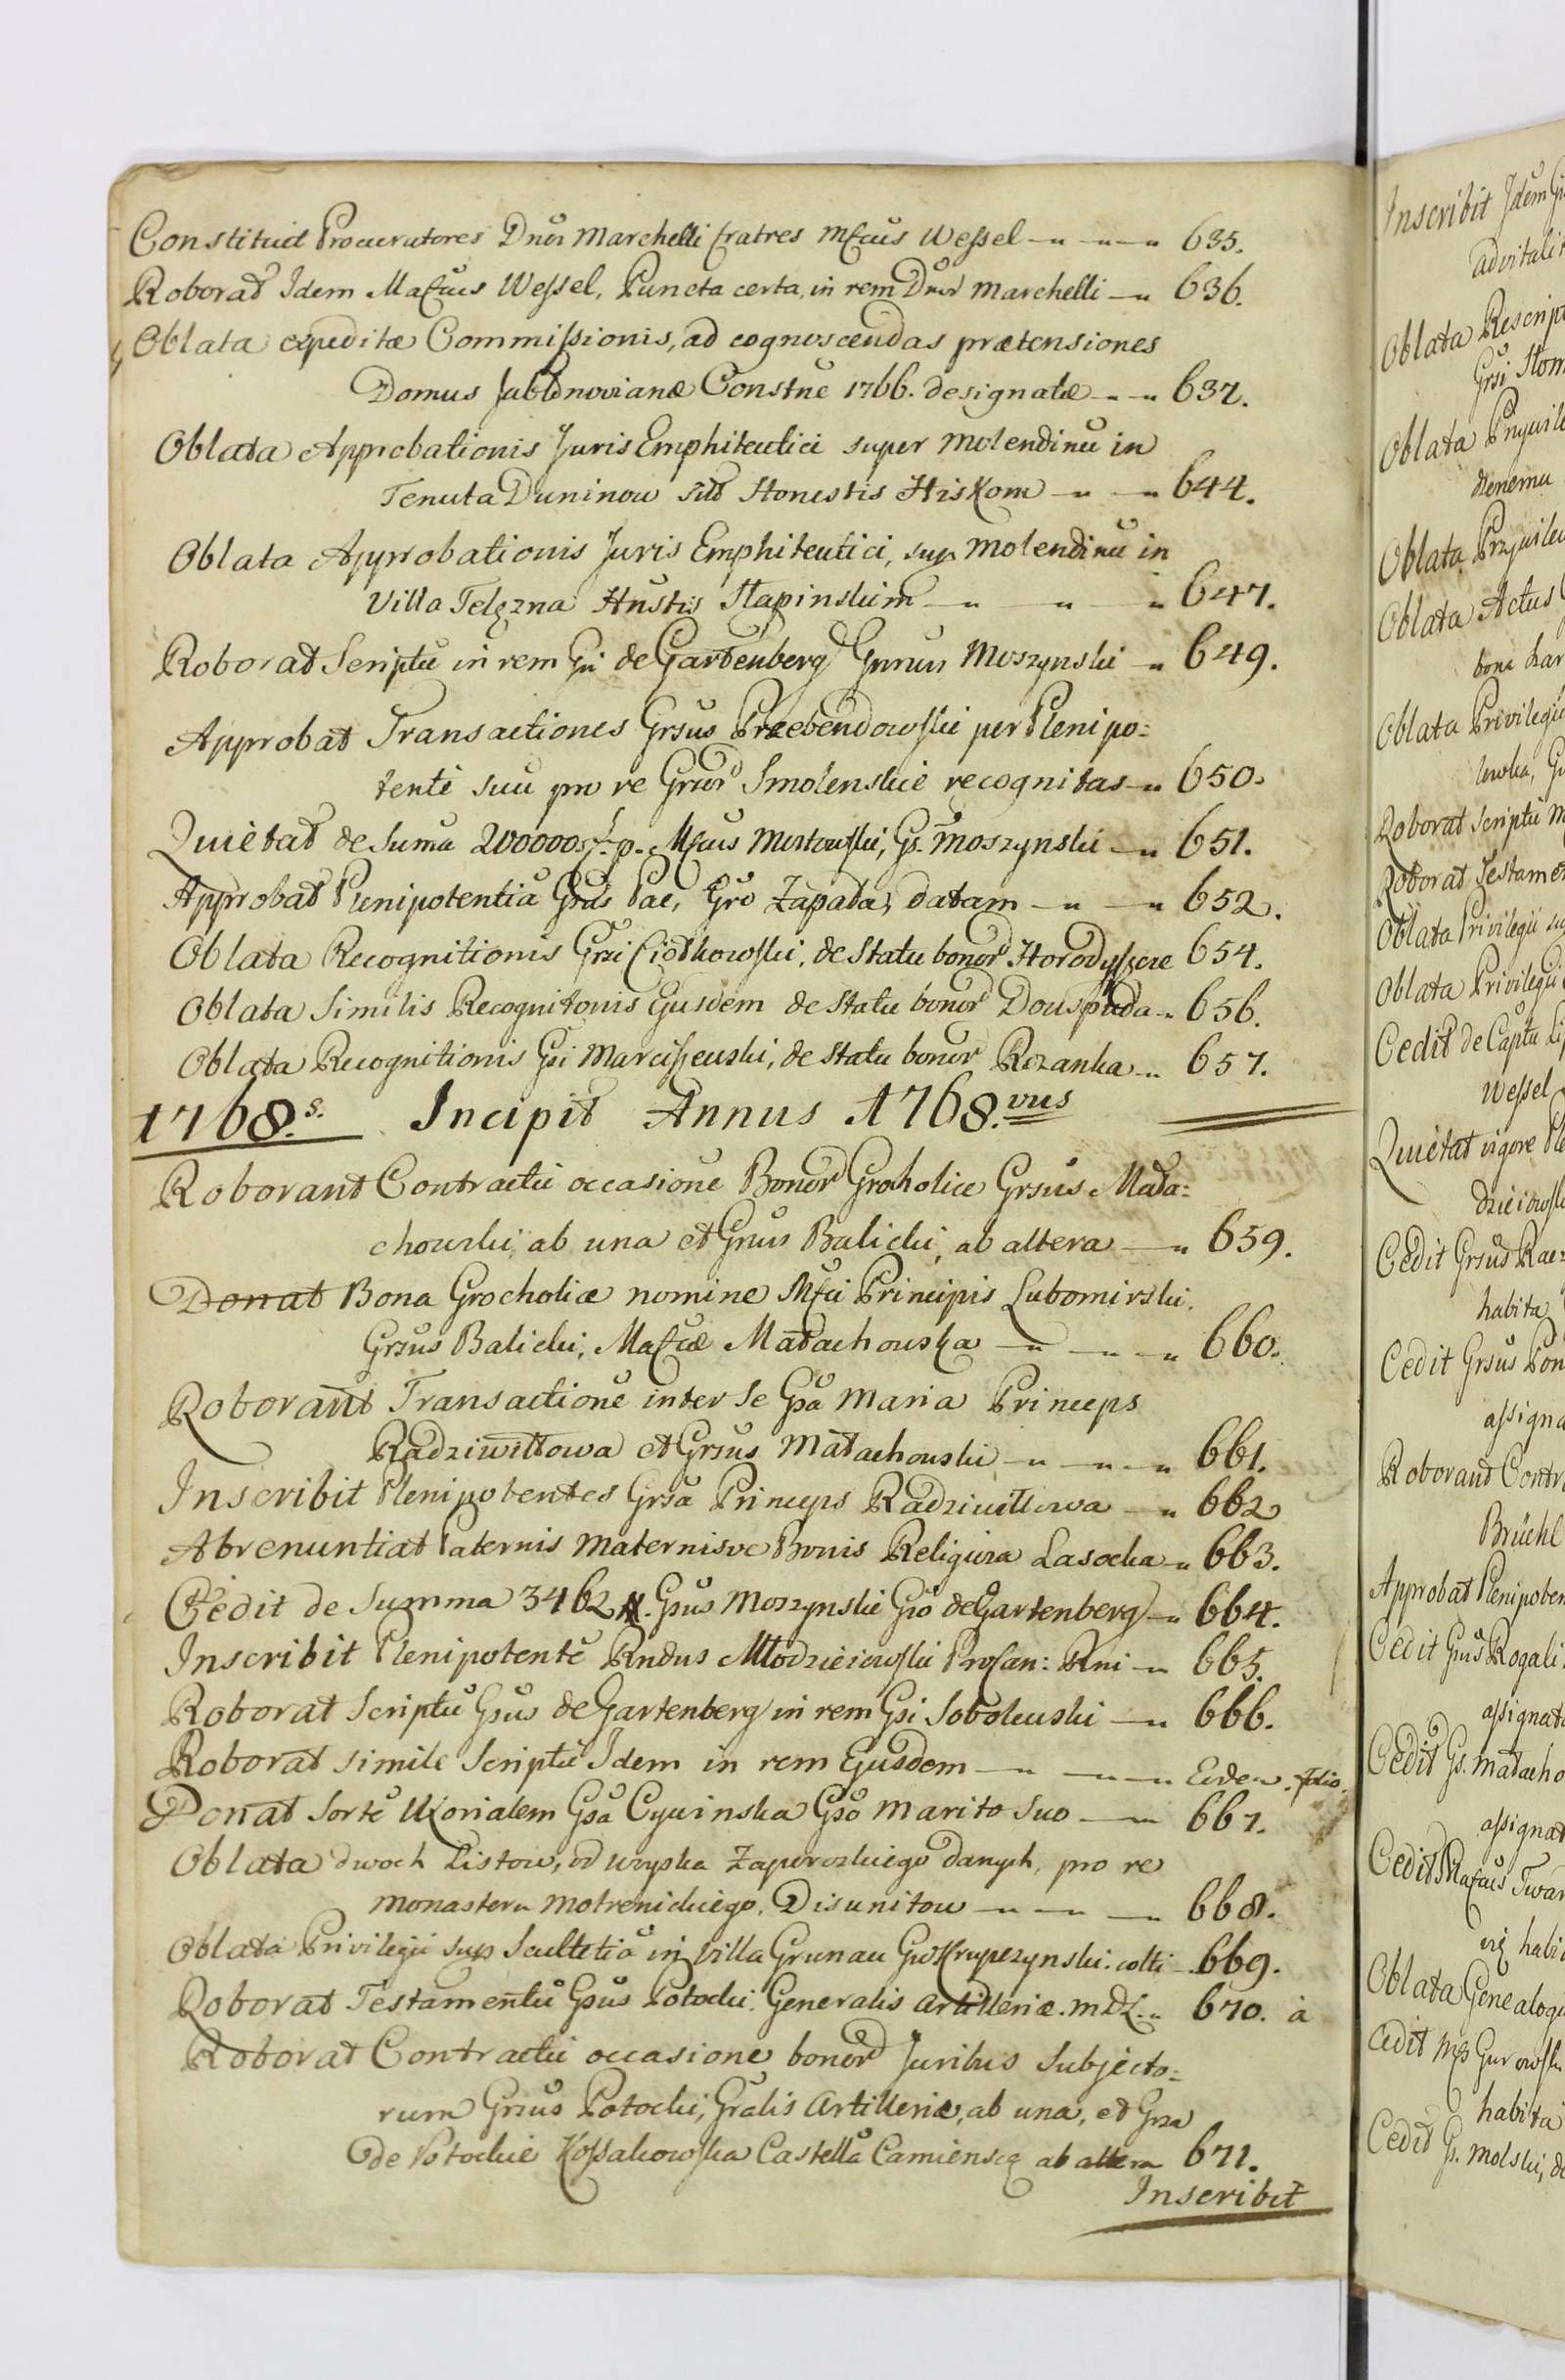 Constituit Procuratores Dnor Marchelli fratres Mfcus Wessel 635.
Roborat Idem Mafcus Wessel, Puncta certa, in rem Dnor Marchelli 636.
Oblata expeditæ Commissionis, ad cognoscendas prætensiones
Domus Jabłonovianæ Constne 1766. designatæ 637.
Oblata Approbationis Juris Emphiteutici super Molendinu in
Tenuta Duninow Honestis Hiskom 644.
Oblata Approbationis Juris Emphiteutici, sup Molendinu in
Villa Telęzna Hnstis Stapinskim 647.
Roborat Scriptu in rem Gsi de Gartenberg Moszynski 649.
Approbat Transactiones Grsus Przebendowski per Plenipo=
tente suu pro re Grsor Smolenskie recognitas 650.
Quietat de Suma 200000 f. p. Mfcus Mostowski, Gs. Moszynski 651.
Approbat Plenipotentia Pac, Gro Zapata, datam 652.
Oblata Recognitionis Grsi Ciołkowski, de Statu bonor Horodyszcze 654.
Oblata Similis Recognitonis Ejusdem de Statu bonor Douspuda 656.
Oblata Recognitionis Gsi Marciszewski, de Statu bonor Rozanka 657.
1768.s. Incipit Annus 1768.vus
Roborant Contractu occasione Bonor Groholice Grsus Mała=
chowski, ab una et Gnus Balicki, ab altera 659.
Donat Bona Grocholice nomine Mfci Principis Lubomirski.
Grsus Balicki, Mafcæ Małachowska 660.
Roborant Transactione inter Se Gsa Maria Princeps
Radziwiłłowa et Grsus Małachowski 661.
Inscribit Plenipotentes Grsa Princeps Radziwiłłowa 662
Abrenuntiat Paternis Maternisve Bonis Religiosa Lasocka 663.
Cedit de Summa 3462 #. Gsus Moszynski Gso de Gartenberg 664.
Inscribit Plenipotente Rndus Młodzieiowski Procan: Rni 665.
Roborat Scriptu Gsus de Gartenberg in rem Gsi Sobolewski 666.
Roborat simile Scriptu Idem in rem Ejusdem Eodem folio.
Donat Sorte Uxorialem Gsa Cywinska Gso Marito Suo 667.
Oblata dwoch Listow, od woyska Zaporozkiego danych, pro re
Monasteru Motrenickiego. Disunitow 668.
Oblata Privilegii sup Scultetia in Villa Grunau Krupczynski. colti 669.
Roborat Testamentu Gsus Potocki. Generalis Artilleriæ. M.D.L. 670. à
Roborat Contractu occasione bonor Juribus Subjecto=
rum Grsus Potocki, Gralis Artilleriæ, ab una, et Grsa
de Potockie Kossakowska Castella Camiensca ab altera 671.
Inscribit
Inscribit Idem
advitalit
Oblata Rescrip
Oblata
Oblata
Oblata Actus
bona
Oblata Privilegii
Roborat Scriptu
Roborat Testamen
Oblata Privilegii
Oblata Privilegii
Cedit de Capta
Wessel
Quietat vigore
Cedit Grsus
habita
Cedit Grsus
assigna
Roborant Contr
Brüehl
Approbat Plenipoten
Cedit Gnus Rogali
assignat
Cedit Gs. Małacho
assignat
Cedit Mafcus Twar
habi
Oblata Genealogi
Cedit Gurowski
habita
Cedit Gs. Molski, de